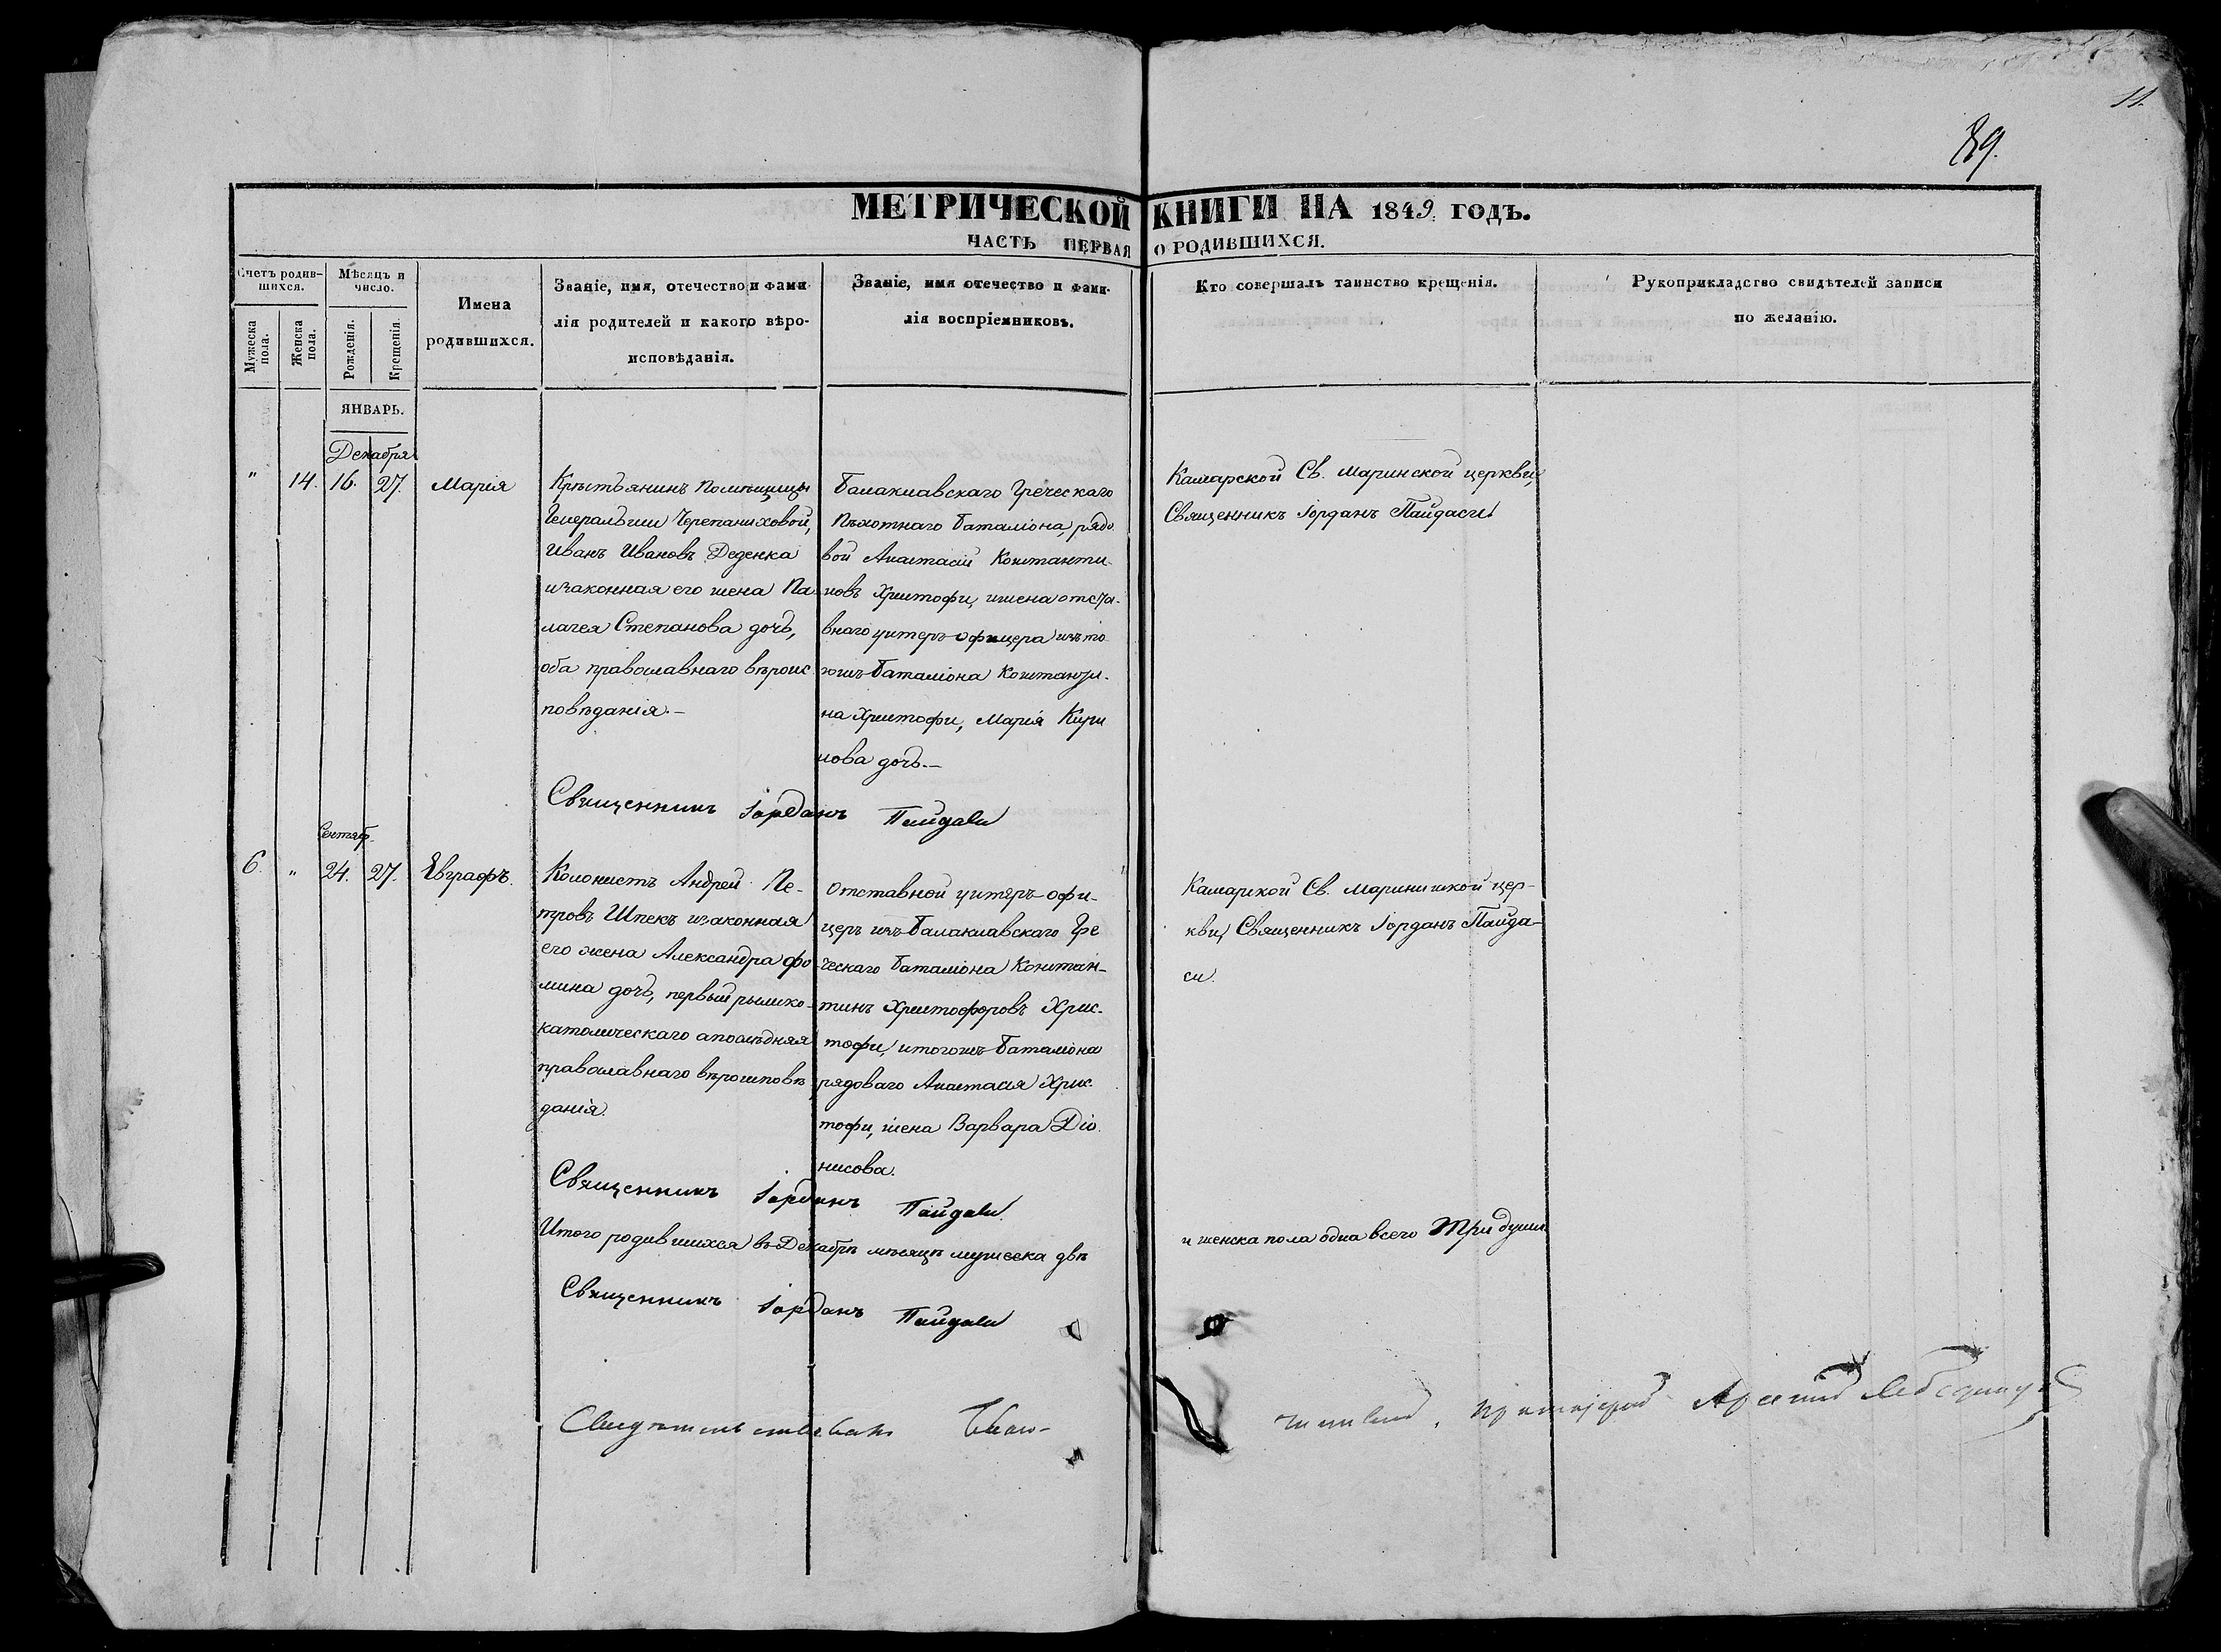 11.
89.
МЕТРИЧЕСКОЙ КНИГИ НА 1849 ГОДЪ.
ЧАСТЬ ПЕРВАЯ О РОДИВШИХСЯ.
Счетъ родив-
шихся.
Мужеска пола.
Женска пола.
Мѣсяцъ и
число.
Рожденія.
Крещенія.
Имена
родившихся.
Званіе, имя, отечество и фами-
лія родителей и какого вѣро-
исповѣданія.
Званіе, имя отечество и фами-
лія воспріемниковъ.
Кто совершалъ таинство крещенія.
Рукоприкладство свидѣтелей записи
по желанію.
ЯНВАРЬ.
Декабря
" 14. 16. 27. Марія
Крѣстьянинъ Помѣщицы
Генеральши Черепаниховой,
Иванъ Ивановъ Деденка
изаконная его жена Па-
лагея Степанова дочь,
оба православнаго вѣроис
повѣданія.—
Балаклавскаго Греческаго
Пѣхотнаго баталіона, рядо
вой Анастасій Константи-
новъ Христофи, ижена отста-
внаго унтеръ-офицера изъ то
гожъ баталіона Константи-
на Христофи, Марія Кири
лова дочь.—
Камарской Св. Маринской церкви,
Священникъ Іорданъ Пайдаси
Священникъ Іорданъ Пайдаси
Сентяб.
6. " 24. 27. Евграфъ.
Колонистъ Андрей Пе-
тровъ Шпекъ изаконная
его жена Александра Фо-
мина дочь, первый рымско-
католическаго апослѣдняя
православнаго вѣроисповѣ
данія.
Отставной унтеръ-офи-
церъ изъ Балаклавскаго Гре
ческаго баталіона Констан-
тинъ Христофоровъ Хрис-
тофи, итогожъ баталіона
рядоваго Анастасія Хрис-
тофи, жена Варвара Діо
нисова.
Камарской Св. Маринской цер-
кви, Священникъ Іорданъ Пайда-
си.
Священникъ Іорданъ Пайдаси.
Итого родившихся въ Декабрѣ мѣсяцѣ мужеска двѣ
и женска пола одна всего три души
Священникъ Іорданъ Пайдаси
Свидѣтельствовалъ Благо-
чинный, Протоіерей Арсеній Лебединцевъ